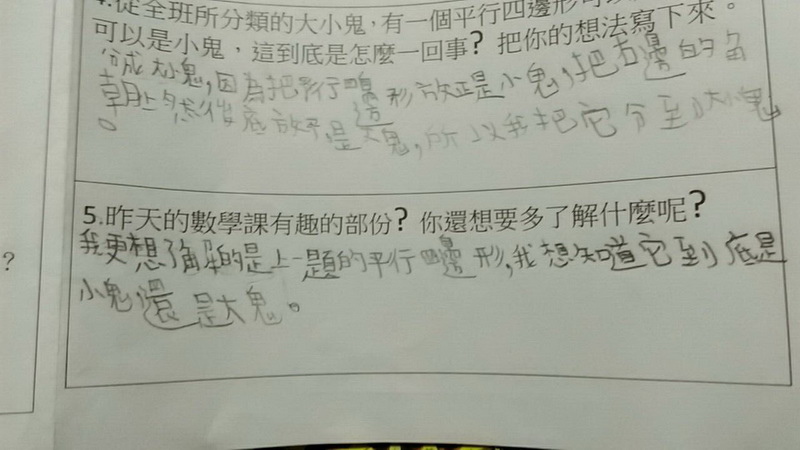 4.從全班所分類的大小鬼，有一個平行四邊形可以
可以是小鬼，這到底是怎麼一回事？把你的想法寫下來。
分成大小鬼,因為把平行四邊形放正是小鬼,把右邊的角
朝上然後底放平,是大鬼,所以我把它分到大小鬼
。
5.昨天的數學課有趣的部份？你還想要多了解什麼呢？
我更想了解的是上一題的平行四邊形,我想知道它到底是
小鬼還是大鬼。
？